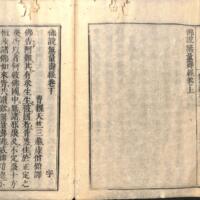 佛說無量壽經卷上
佛說無量壽經卷下
曹魏天竺三藏康僧鎧譯
佛告阿難其有衆生生彼國者皆悉住於正定之
聚所以者何彼佛國中無諸邪聚及不定聚十方
恒沙諸佛如來皆共讚歎無量壽佛威神功